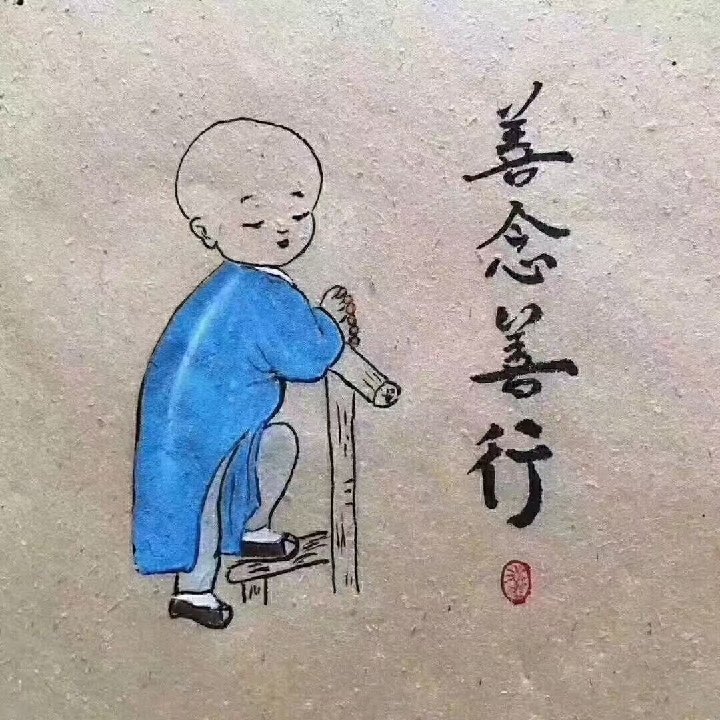 善念善行